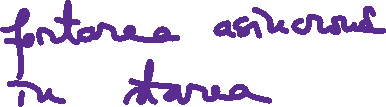 fortarea asincronă
in starea